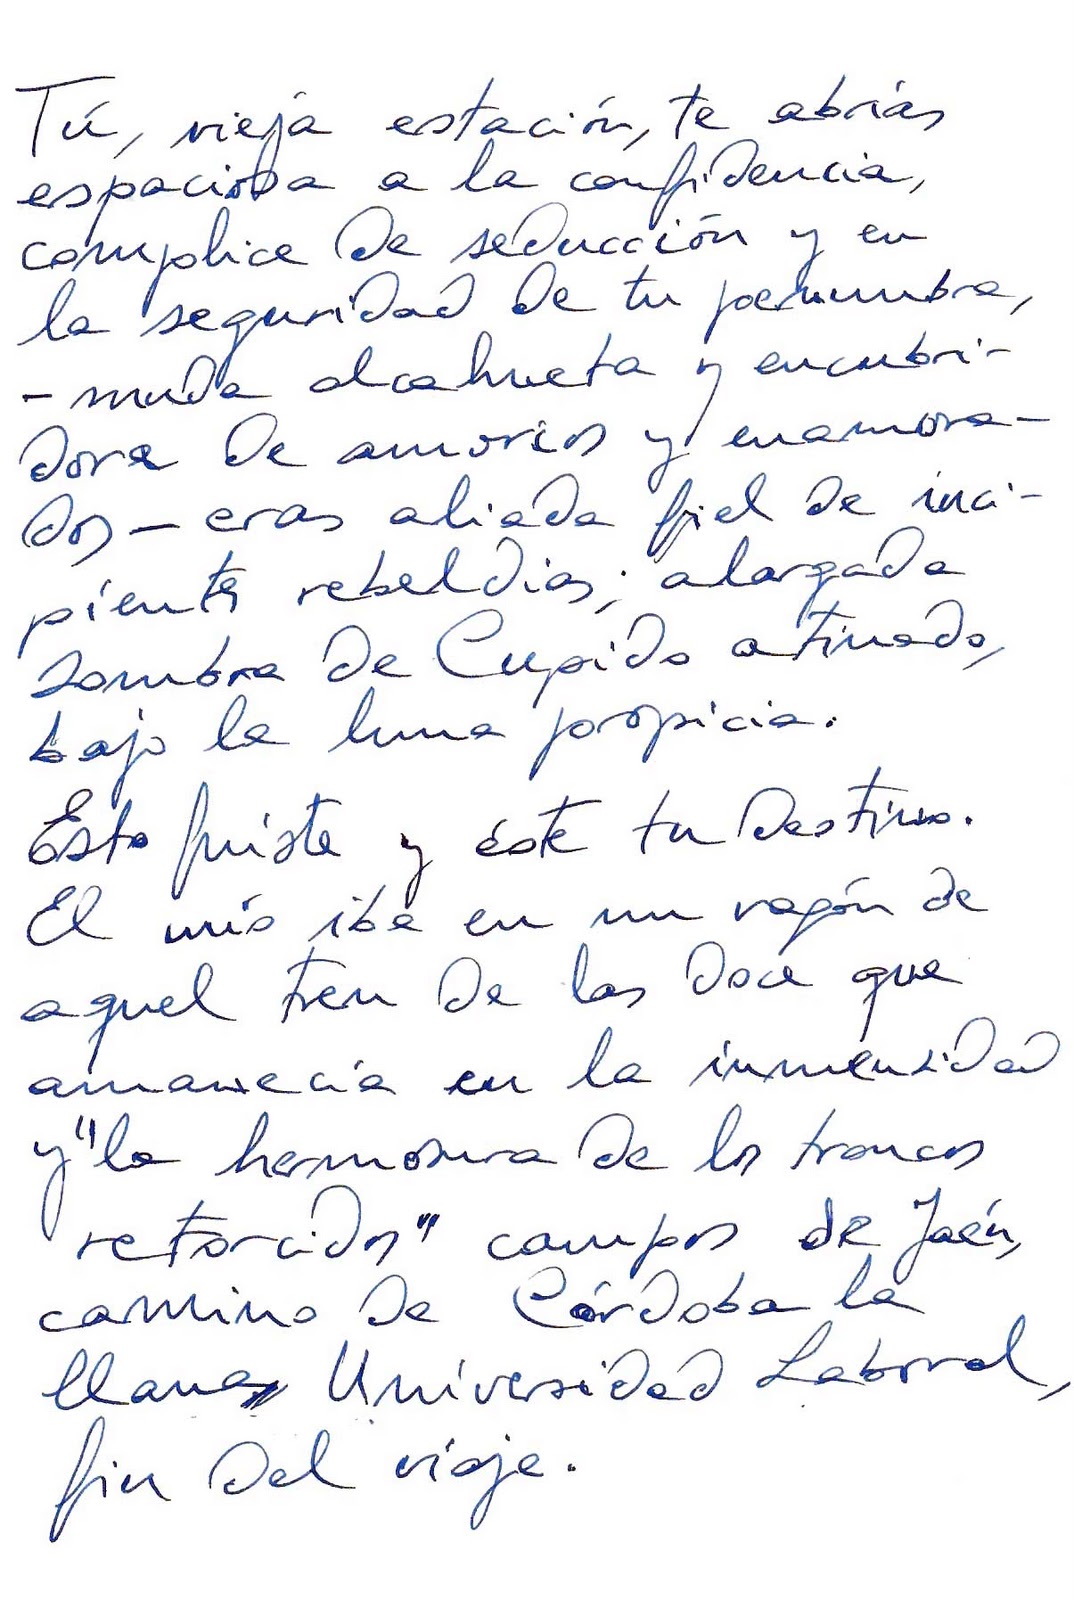 Tú, vieja estación, te abrías
espaciosa a la confidencia,
complice de seducción y en
la seguridad de tu penumbra,
- muda alcahueta y encubri-
dora de amoríos y enamora-
dos - eras aliada fiel de inci-
piente rebeldías; alargada
sombra de Cupido atinado,
bajo la luna propicia.
Esto fuiste y éste tu destino.
El mío iba en un vagón de
aquel tren de las doce que
amanecía en la inmensidad
y "la hermosura de los troncos
retorcidos" campos de Jaén,
camino de Córdoba la
llana, Universidad Laboral,
fin del viaje.